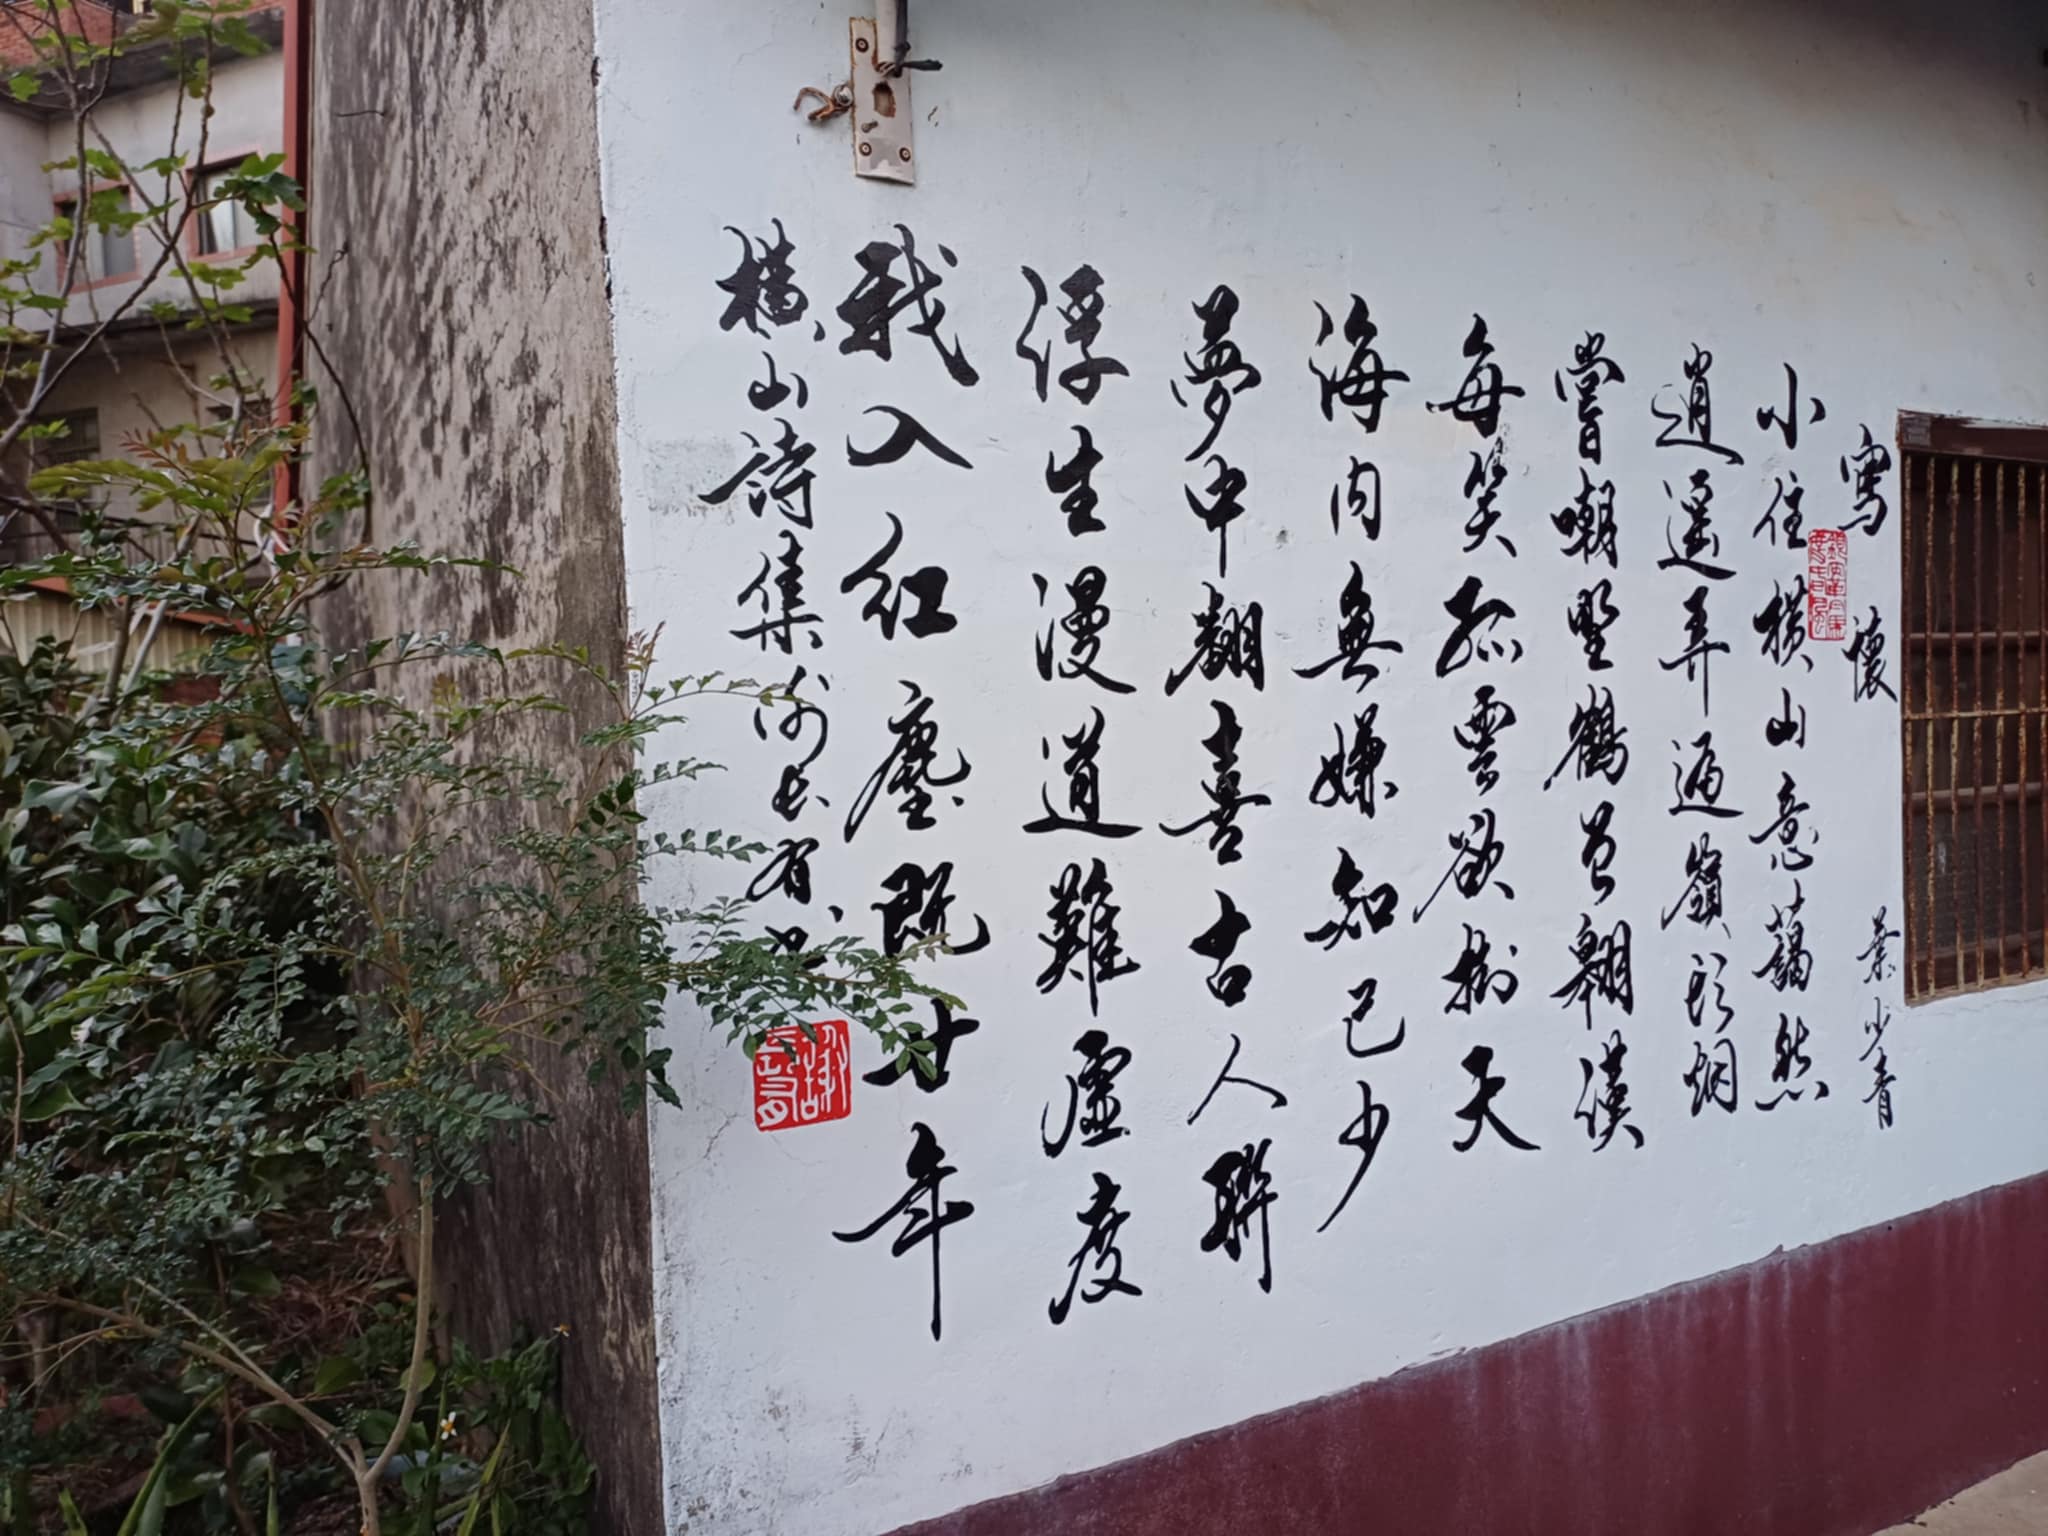 寫懷 葉少青
小住橫山意藹然
逍遙弄遍嶺頭烟
嘗嘲野鶴曾翱漢
每笑孤雲欲樹天
海內無嫌知己少
夢中翻喜古人聯
浮生漫道難虛度
我入紅塵既廿年
橫山詩集 謝長有